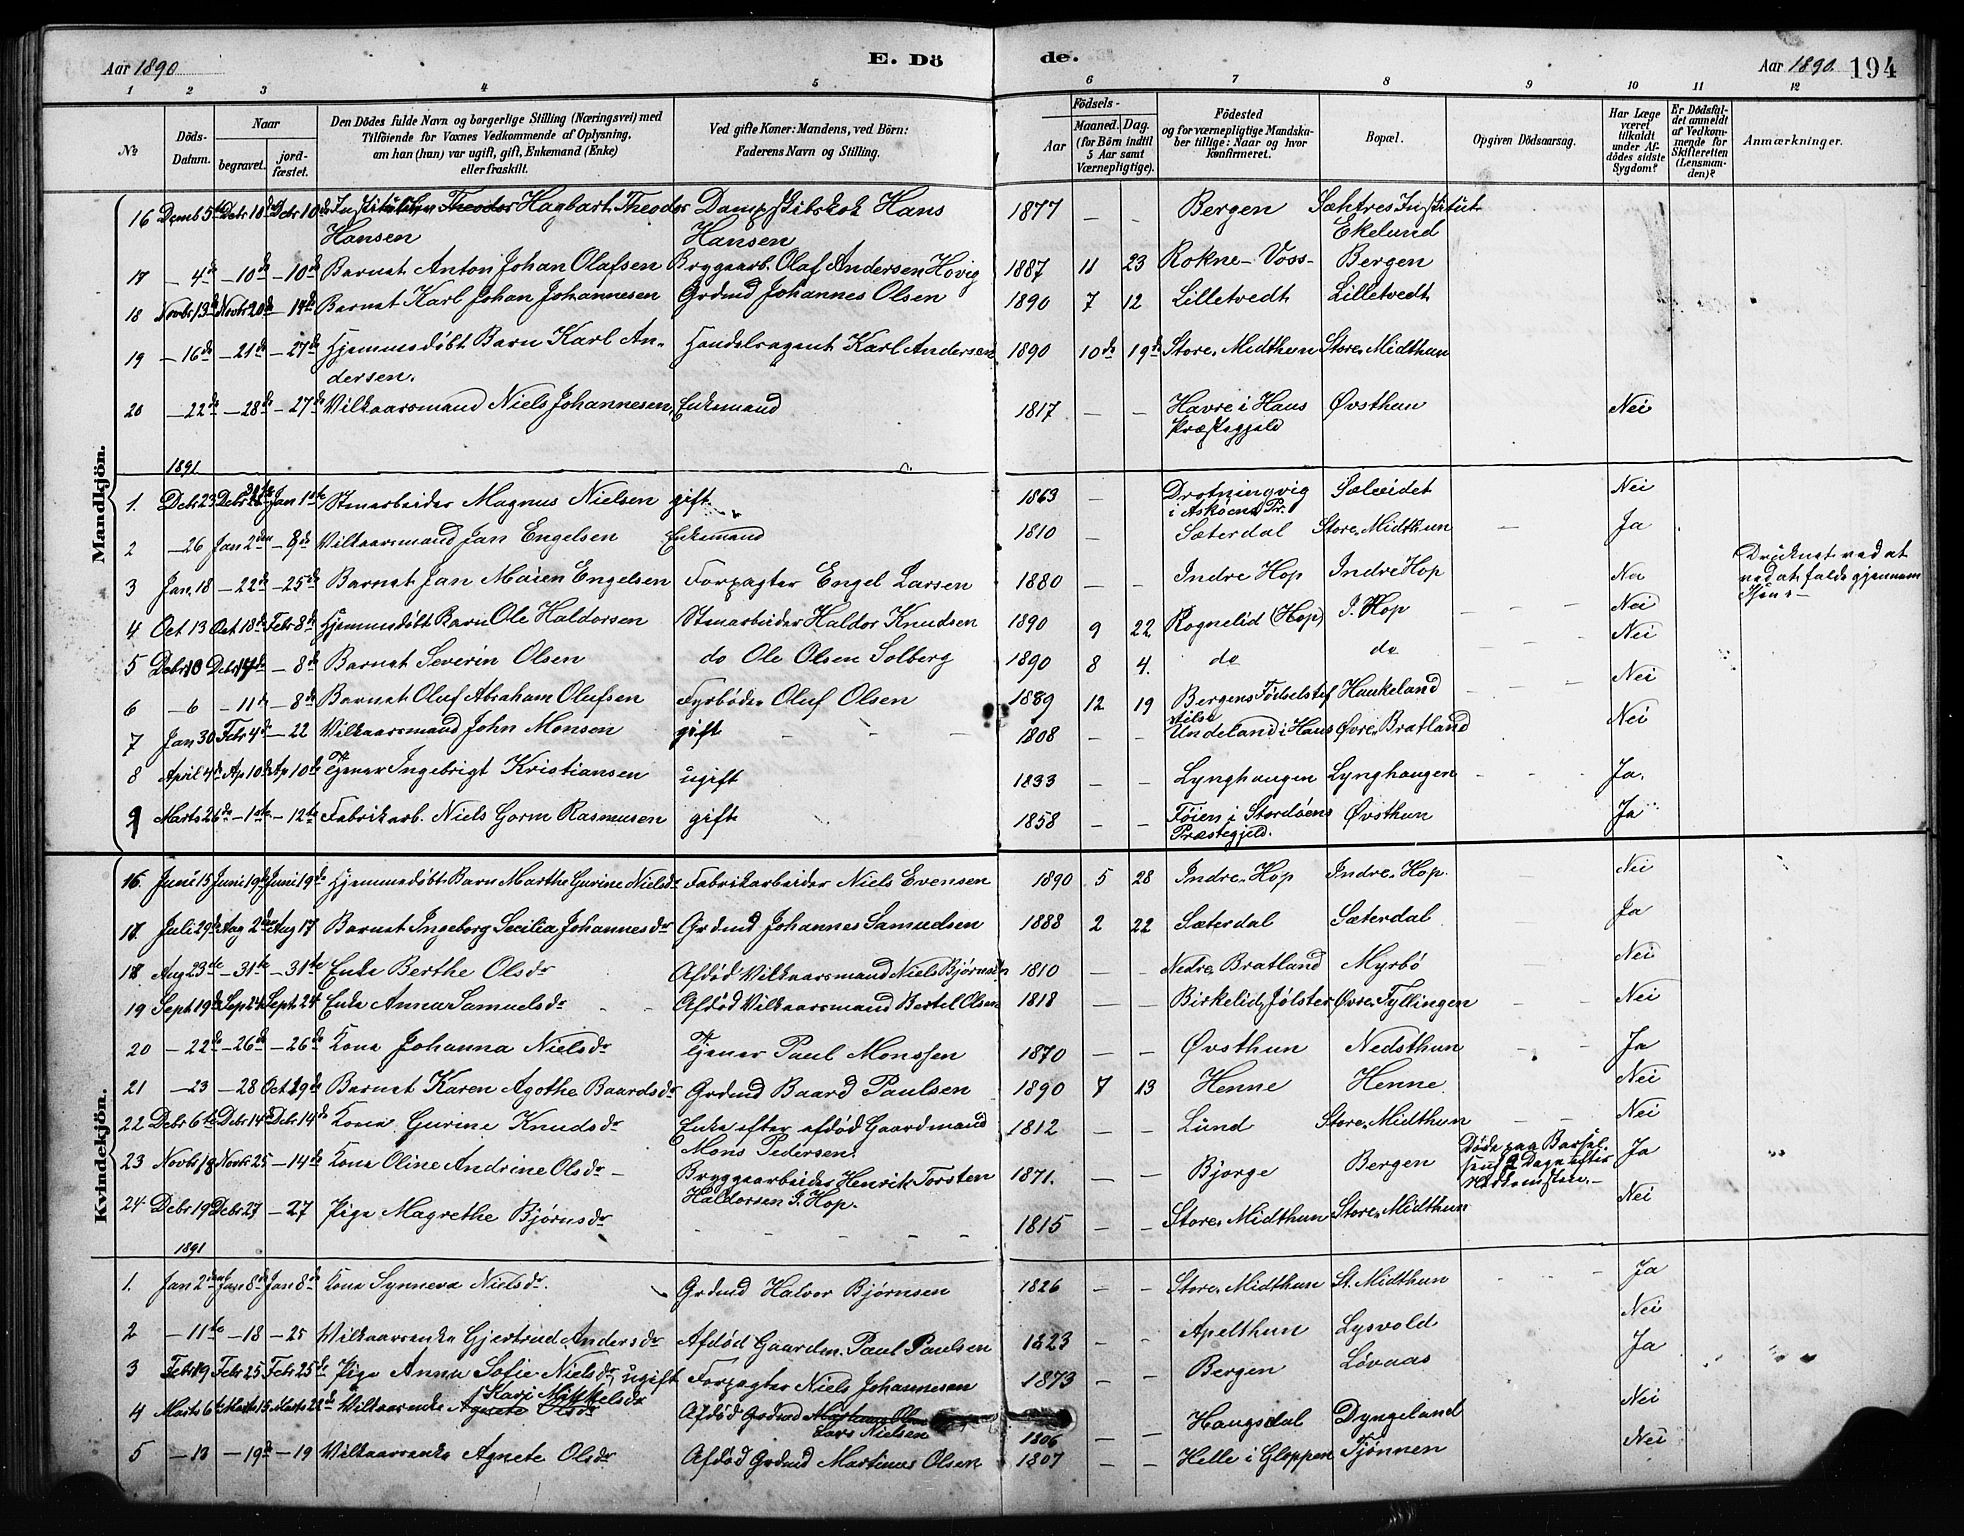 Aar 1890
E. Dö
de.
Aar 1890. 194
1 2 3 4 5 6 7 8 9 10 11 12
No
Döds-Datum.
Naar
begravet.
jord-fæstet.
Den Dödes fulde Navn og borgerlige Stilling (Næringsvei) med
Tilföiende for Voxnes Vedkommende af Oplysning,
om han (hun) var ugift, gift, Enkemand (Enke)
eller fraskilt.
Ved gifte Koner: Mandens, ved Börn:
Faderens Navn og Stilling.
Födsels-
Aar
Maaned. Dag.
(for Börn indtil
5 Aar samt
Værnepligtige).
Födested
og for værnepligtige Mandska-
ber tillige: Naar og hvor
konfirmeret.
Bopæl.
Opgiven Dödsaarsag.
Har Læge
været
tilkaldt
under Af-
dödes sidste
Sygdom?
Er Dödsfal-
det anmeldt
af Vedkom-
mende for
Skifteretten
(Lensman-
den)?
Anmærkninger.
Mandkjön.
16 Decmb 5te Debr 10de Debr 10de Theodor Hagbart Theodor Hansen Dampskibskok Hans Hansen 1877 – – Bergen Sæhtres Institut Ekelund
17 – 4de – 10de – 10de Barnet Anton Johan Olafsen Bryggearb. Olaf Andersen Hovig 1887 11 23 Rokne – Voss – Bergen
18 Novbr 13de Novbr 20de – 14de Barnet Karl Johan Johannesen Grdmd Johannes Olsen 1890 7 12 Lilletvedt Lilletvedt
19 – 16de – 21de – 27de Hjemmedöbt Barn Karl Andersen. Handelsagent Karl Andersen 1890 10de 19de Store Midthun Store Midthun
20 – 22de – 28de – 27de Vilkaarsmand Niels Johannesen, Enkemand 1817 – – Havre i Haus Præstegjeld Øvsthun Nei
1891
1. Debr 23 Debr Jan 1ste Stenarbeider Magnus Nielsen gift 1863 – Drotningvig i Askøens Pr. Sæleidet Nei
2 – 26 Jan 2den – 9de Vilkaarsmand Jan Engelsen Enkemand 1810 – – Sæterdal Store Midthun – Ja
3 Jan 18 – 22de – 25de Barnet Jan Maien Engelsen Forpagter Engel Larsen 1880 – – Indre Hop Indre Hop Nei Druknet ved at ved at falde gjennem Isen –
4 Oct 13 Oct 18de Febr 8de Hjemmedöbt Barn Ole Haldorsen Stenarbeider Haldor Knudsen 1890 9 22 Rognelid (Hop) I. Hop – – – Nei
5 Debr 10 Debr 17de – 8de Barnet Severin Olsen do Ole Olsen Solberg 1890 8 4. do do Nei
6 – 6 – 11te – 8de Barnet Oluf Abraham Olufsen Fyrbøder Oluf Olsen 1889 12 19 Bergens Fødselsstiftelse Haukeland – – – Nei
7 Jan 30 Febr 4de – 22 Vilkaarsmand John Monsen gift – – – 1808 – – Undeland i Haus Øvre Bratland Nei
8 April 4de Ap 10de Ap 10de Tjener Ingebrigt Kristiansen ugift 1833 – – Lynghaugen Lynghaugen – – Ja.
9 Marts 26de – 1ste – 12te Fabrikarb. Niels Gorm Rasmusen gift 1858 – – Føien i Stordøens Præstegjeld. Øvsthun Ja
Kvindekjön.
16. Juni 15 Juni 19de Juni 19de Hjemmedöbt Barn Marthe Gurine Nielsdr Fabrikarbeider Niels Evensen 1890 5 28 Indre Hop Indre Hop. Nei
17. Juli 29de Aug 2den Aug 17 Barnet Ingeborg Secilia Johannesdr Grdmd Johannes Samuelsen 1888 2 22 Sæterdal Sæterdal Ja
18. Aug 23de – 31te – 31te Enke Berthe Olsdr Afdöd Vilkaarsmand Niels Bjørnsen 1810 – – Nedre Bratland Myrbö Nei
19 Sept 19de Sept 24 Sept 24 Enke Anna Samuelsdr Afdöd Vilkaarsmand Bertel Olsen 1818 – – Birkelid, Jølster Øvre Fyllingen Nei
20 – 22de – 26de – 26de Kone Johanna Nielsdr Tjener Paul Monssen 1870 – – Øvsthun Nedsthun Ja
21 – 23 – 28 Oct 19de Barnet Karen Agothe Baardsdr Grdmd Baard Paulsen 1890 7 13 Henne Henne Nei
22 Debr 6te Debr 14de Debr 14de Kone Gurine Knudsdr Enke efter afdöd Gaardmand Mons Pedersen. 1812 – – Lund Store Midthun – Nei
23 Novbr 18 Novbr 25 – 14de Kone Oline Andrine Olsdr – Bryggearbeider Henrik Torsten Haldorsen I. Hop. 1871. – – Bjorge Bergen Døde paa Barsel-seng 2 Dage efter Nedkomsten. – Ja
24 Debr 19 Debr 27 – 27 Pige Magrethe Bjørnsdr – – – – – 1815 – – Store Midthun Store Midthun Nei
1891
1. Jan 2den Jan 8de Jan 8de Kone Synneva Nielsdr. Grdmd Halvor Bjørnsen 1826 – – Store Midthun St. Midthun Ja
2 – 11te – 18 – 25 Vilkaarsenke Gjertrud Andersdr Afdöd Gaardm. Paul Paulsen 1823 – – Apelthun Lysvold Nei
3 Febr 19 Febr 25 Febr 25de Pige Anna Sofie Nielsdr, ugift Forpagter Niels Johannesen 1873 – – Bergen Løvaas Ja
4 Marts 6te Marts 15 Marts 22de Vilkaarenke Agnete Olsdr Kari Mikkelsdr Afdöd Grdmd Martinus Olsen Lars Nielsen 1806 – – Haugsdal Dyngeland Nei
5 – 13 – 19de – 19 Vilkaarsenke Agnete Olsdr Afdöd Grdmd Martinus Olsen 1807 – – Helle i Gloppen Tjønnen Nei